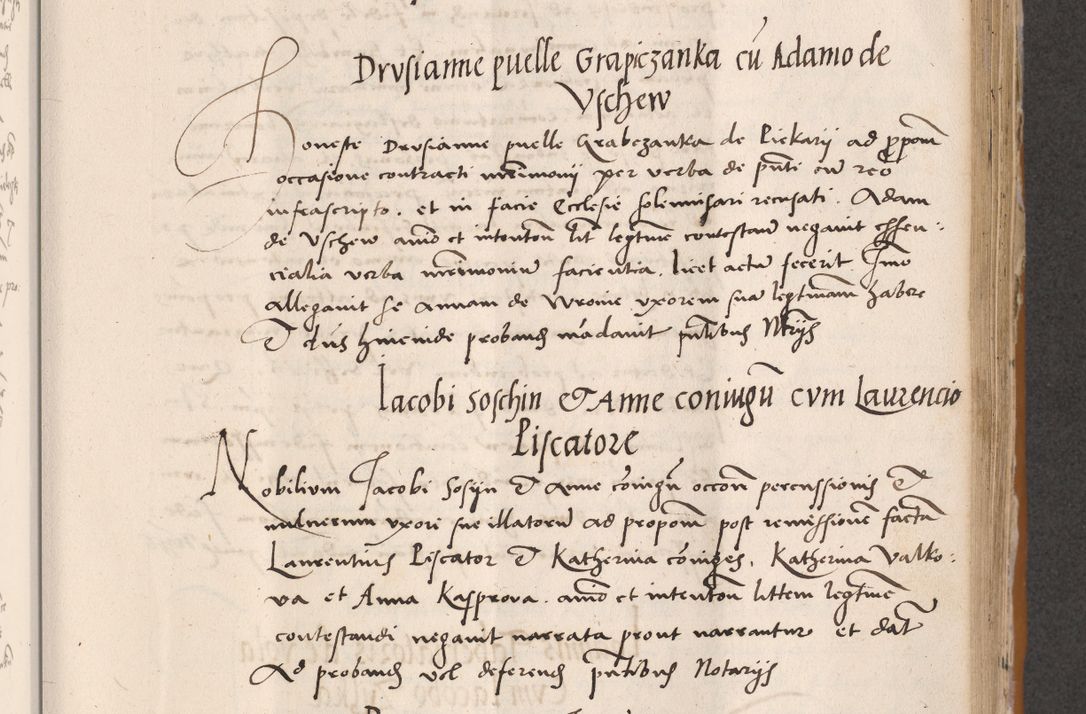 Drusianne puelle Grapiczanka cū Adamo de
Uschew
Honeste Drusianne puelle Grabczanka de Piekarii ad ꝓpom
occasione contracti mrimonii per verba de pnti cū reo
infrascripto, et in facie Ecclesie solemnisari recusati. Adam
de Uschew animo et intentoni lit legtime contestans negavit essen-
cialia verba mrimonium facientia, licet actū fecerit. Imo
allegavit se Annam de Wronie uxorem suā legtimam habere
Et dns hincinde proband mādavit pntibus Ntrijs
Iacobi Soschin et Anne coniugū cum Laurencio
Piscatore
Nobilium Iacobi Sosijn et Anne cōiugū occon percussionis et
vulnerum uxori sue illatorū ad propom post remissionē factā
Laurentius Piscator et Katherina cōiuges, Katherina Valko-
va et Anna Kasprova. animo et intentoni littem legtime
contestandi negavit narrata prout narrantur et dat
Ad proband vel deferend pntibus Notarijs